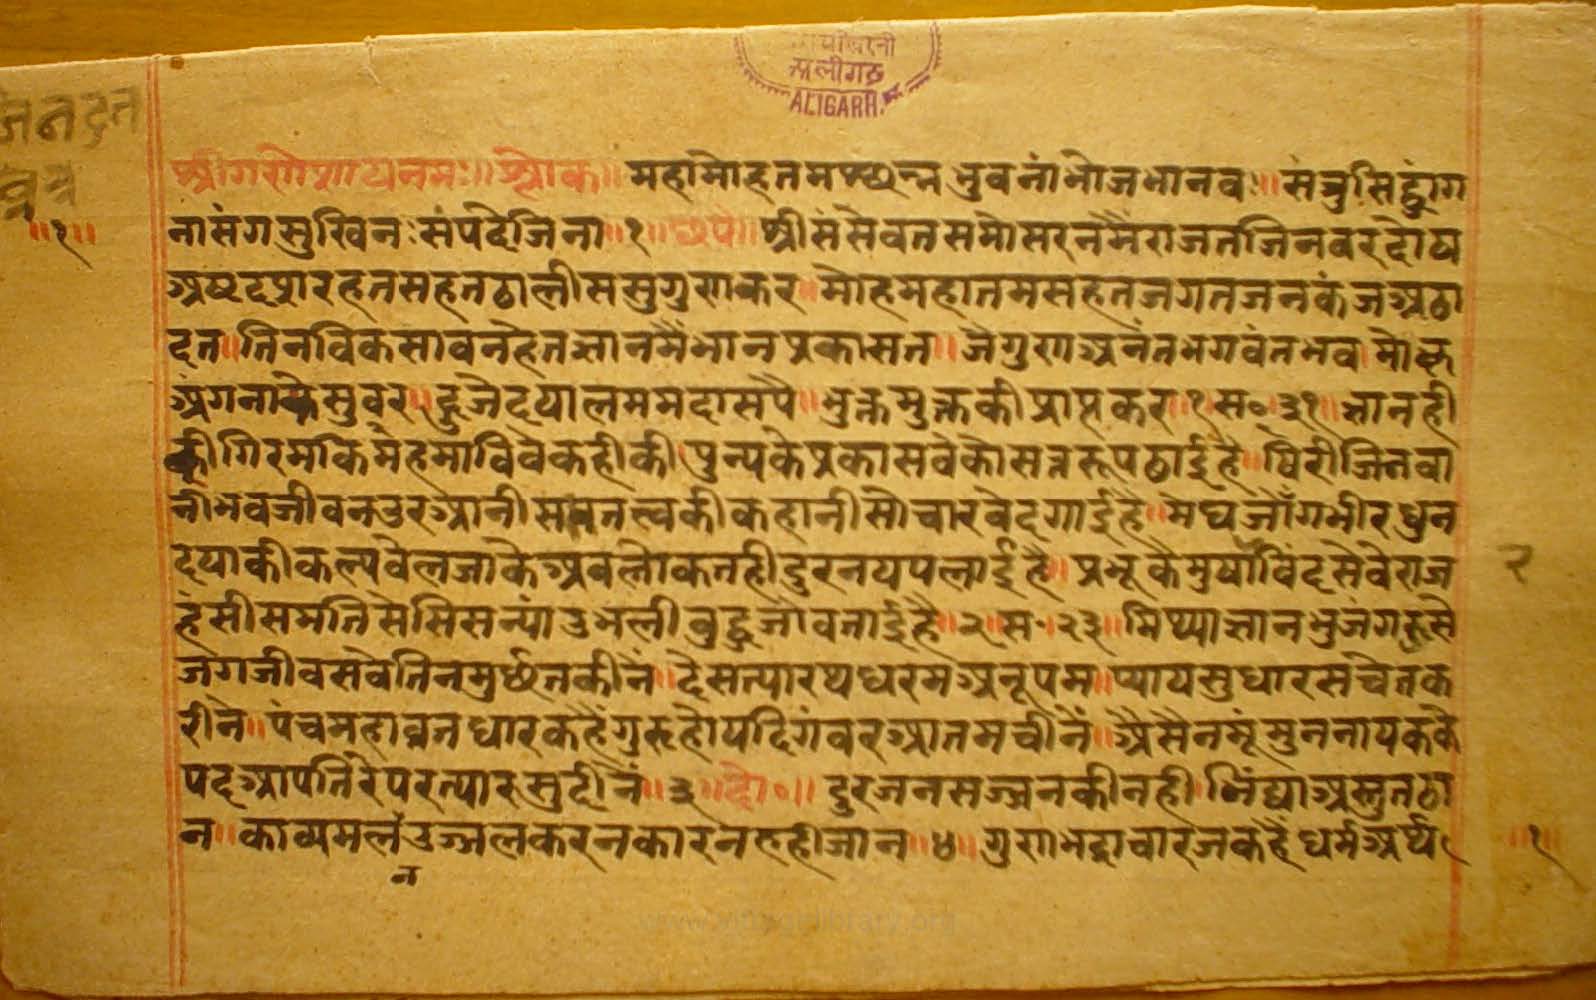 अलीगढ़
ALIGARH.
जिनदत
चरित्र
॥१॥
श्रीगणेशायनमः॥ श्लोक॥ महामोहतमश्छन्नभुवनांभोजभानवः॥ संतुसिद्ध्यंग
नासंगसुखिनःसंपदेजिना॥१॥ छपै॥ श्रीसंसेवतसमोसरनमैंराजतजिनवरदोष
अष्टदशरहतसहतछालीससुगुणकर॥ मोहमहातमसहतजगतजनकंजअछा
दत॥ तिनविकसावनहेतज्ञानमैंभानप्रकासत॥ जैगुणअनंतभगवंतभव।मोक्ष
अंगनाकेसुवर॥ हूजैदयालममदासपै॥ भुक्तमुक्तकीप्राप्तकर॥१॥स॰३१॥ज्ञानही
कीगिरमकिमेहमाविवेकहीकी।पुन्यकेप्रकासवेकोसत्ररूपठाईहै॥ षिरीजिनवा
नीभवजीवनउरआनीसप्ततत्त्वकीकहानीसोचारवेदगाईहै॥ मेघज्योंगभीरधुन
दयाकीकल्पवेलजाकेअवलोकतहीदुरनयपलाईहै॥ प्रभूकैमुषार्विंदसेवेराज
हंसीसमतिसेसिसन्यांउभलीबुद्धजोवनाईहै॥२॥स॰।२३॥ मिथ्याज्ञानभुजंगहसे
जगजीवसवेतिनमुर्छतकीनें॥ देसत्यारथधरमअनूपम॥ प्यायसुधारसचेतक
रीने॥ पंचमहाव्रतधारकहैंगुरूहोयदिगंवरआतमचीनें॥ अैसैनमूंमुननायककै
पदआपतिरेपरत्यारसुदीनें॥३॥ दो॰॥ दुरजनसज्जनकीनही।निंद्याअस्तुतठा
न॥ काव्यमलनउज्जलकरनकारनतहीजान॥४॥ गुणभद्राचारजकहैंधर्मअर्थ
२
॥१